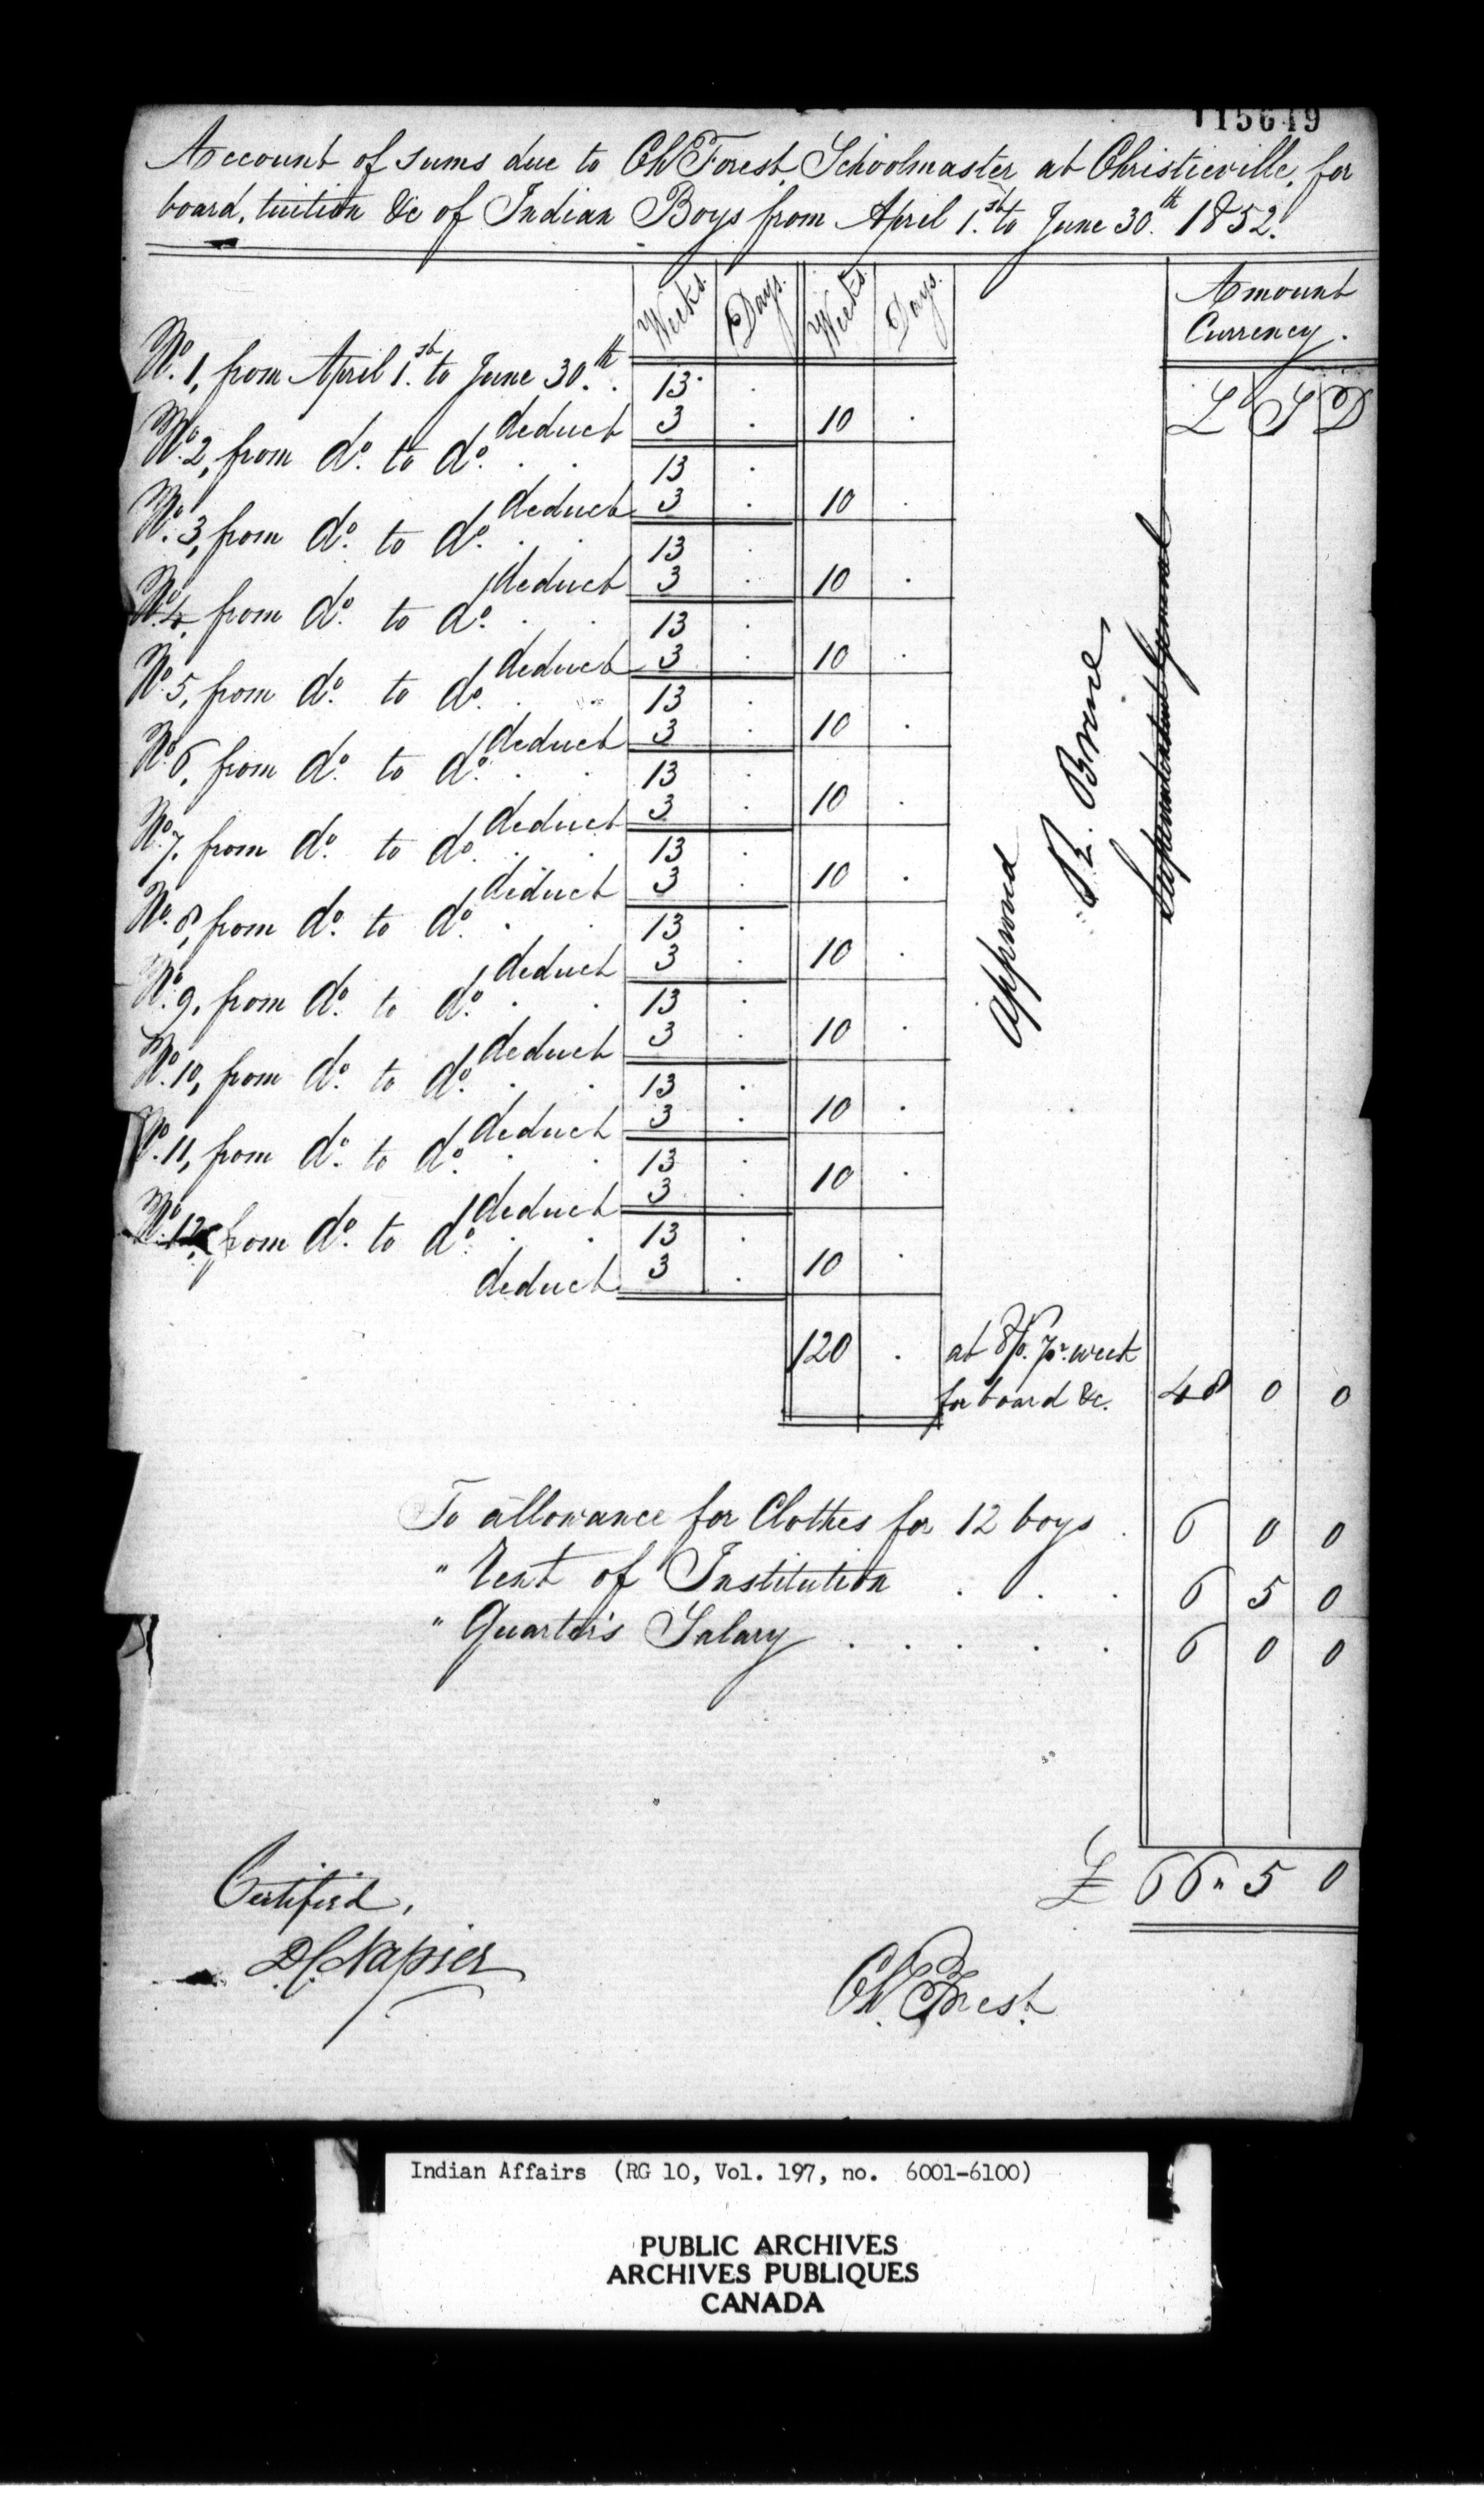 115649
Account of sums due to Ch Forest, Schoolmaster at Christieville, for
board, tuition &c of Indian Boys from April 1.st to June 30.th 1852.
Weeks. Days. Weeks. Days. Amount
Currency.
£ S D
No. 1, from April 1.st to June 30.th . 13 .
deduct 3 . 10 .
No. 2, from do. to do. . . 13 .
deduct 3 . 10 .
No. 3, from do. to do. . . 13 .
deduct 3 . 10 .
No. 4, from do. to do. . . 13 .
deduct 3 . 10 .
No. 5, from do. to do. . . 13 .
deduct 3 . 10 .
No. 6, from do. to do. . . 13 .
deduct 3 . 10 .
No. 7, from do. to do. . . 13 .
deduct 3 . 10 .
No. 8, from do. to do. . . 13 .
deduct 3 . 10 .
No. 9, from do. to do. . . 13 .
deduct 3 . 10 .
No. 10, from do. to do. . . 13 .
deduct 3 . 10 .
No. 11, from do. to do. . . 13 .
deduct 3 . 10 .
No. 12, from do. to do. . . 13 .
deduct 3 . 10 .
120 . at 8/0. pr. week
for board &c. 48 0 0
Approved
R. Bruce
Superintendent General
To allowance for Clothes for 12 boys . 6 0 0
" Rent of Institution . . . 6 5 0
" Quarter's Salary . . . . . 6 0 0
£ 66 " 5 0
Certified,
D C Napier
Ch. Forest.
Indian Affairs (RG 10, Vol. 197, no. 6001-6100)
PUBLIC ARCHIVES
ARCHIVES PUBLIQUES
CANADA